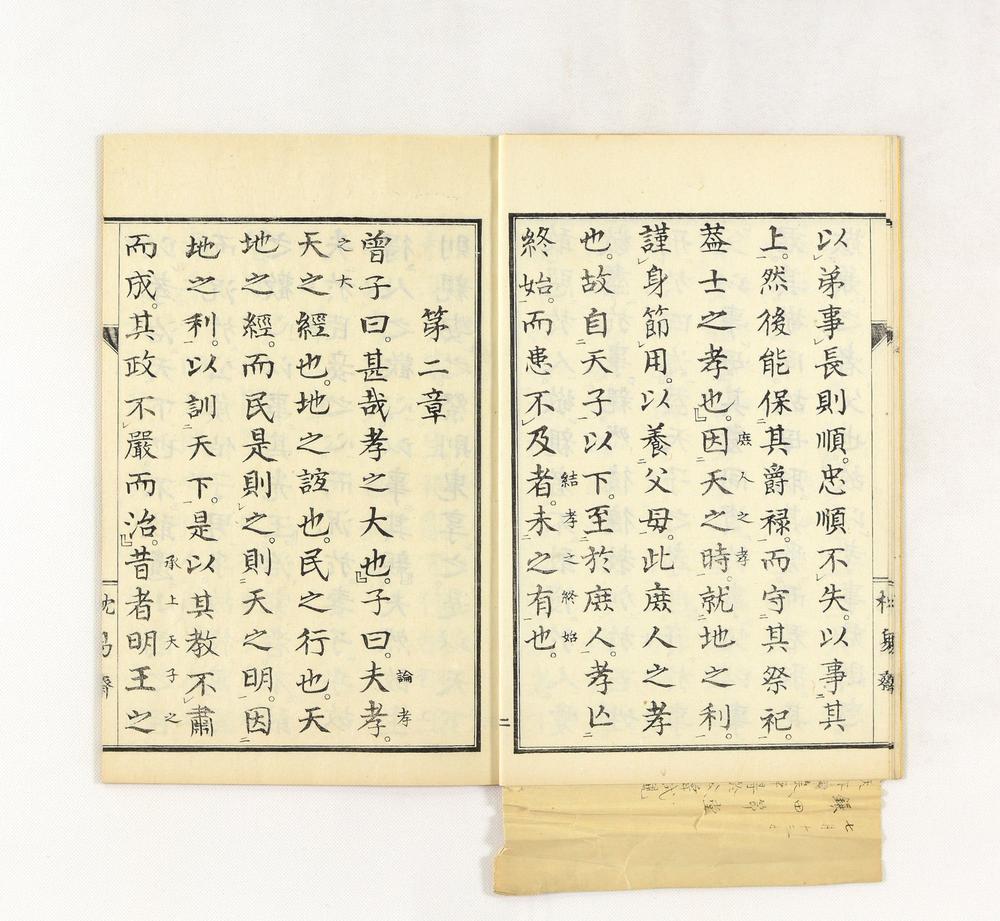 以弟事長則順。忠順不失。以事其
上。然後能保其爵祿。而守其祭祀。
葢士之孝也。』因天之時。就地之利。
庶人之孝
謹身節用。以養父母。此庶人之孝
也。故自天子以下。至於庶人。孝亾
結孝之終始
終始。而患不及者。未之有也。
二
第二章
曾子曰。甚哉孝之大也。』子曰。夫孝。
論孝
之大
天之經也。地之誼也。民之行也。天
地之經。而民是則之。則天之明。因
地之利。以訓天下。是以其教不肅
承上天子之
而成。其政不嚴而治。』昔者明王之
七月十二日